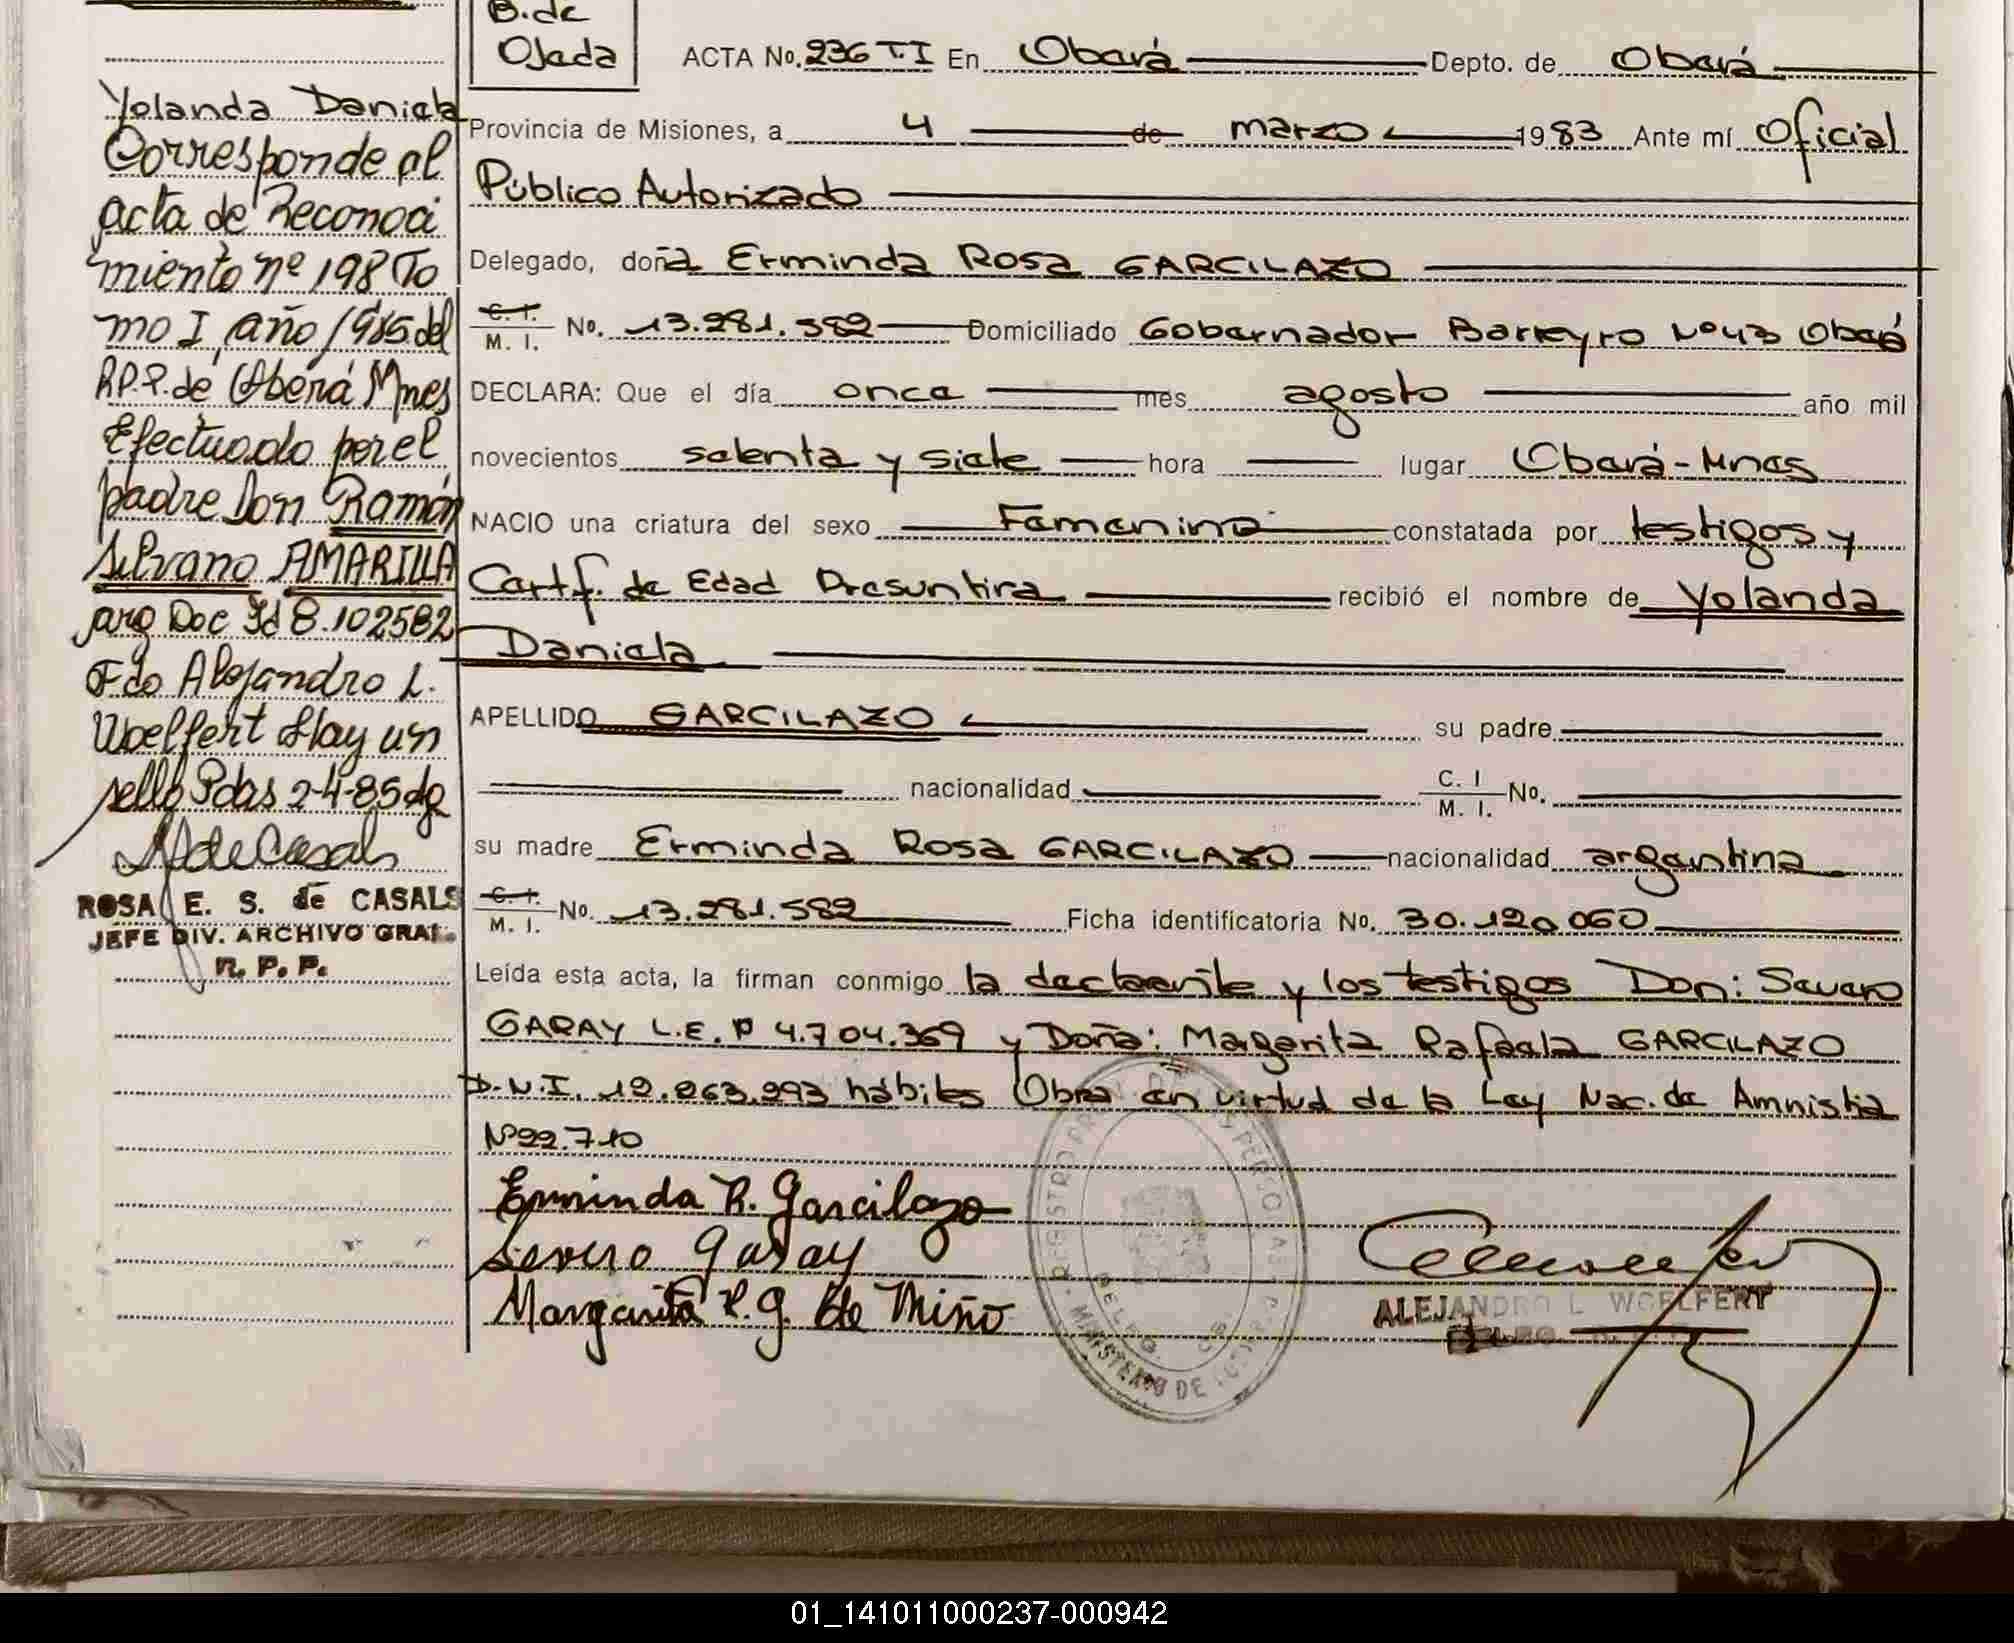 B. de
Ojeda
ACTA No. 236 T.I En Oberá Depto. de Oberá
Provincia de Misiones, a 4 de marzo 1983 Ante mí Oficial
Público Autorizado
Delegado, doña Erminda Rosa GARCILAZO
C. I.
M. I. No. 13.281.582 Domiciliado Gobernador Barreyro Nº 43 Oberá
DECLARA: Que el día once mes agosto año mil
novecientos setenta y siete hora lugar Oberá-Mnes
NACIO una criatura del sexo Femenino constatada por testigos y
Certf. de Edad Presuntiva recibió el nombre de Yolanda
Daniela
APELLIDO GARCILAZO su padre
nacionalidad C. I
M. I. No.
su madre Erminda Rosa GARCILAZO nacionalidad argentina
C. I.
M. I. No. 13.281.582 Ficha identificatoria No. 30.120.060
Leída esta acta, la firman conmigo la declarante y los testigos Don: Severo
GARAY L.E. Nº 4.704.369 y Doña: Margarita Rafaela GARCILAZO
D.N.I. 12.263.293 hábiles Obra en virtud de la Ley Nac. de Amnistia
Nº 22.710
Erminda R. Garcilazo
Severo Garay
Margarita R. G. de Miño
ALEJANDRO L WOELFERT
Yolanda Daniela
Corresponde al
acta de Reconoci
miento nº 198 To
mo I, año 1985 del
R.P.P. de Oberá Mnes
Efectuado por el
padre Don Ramón
Silvano AMARILLA
arg Doc Id 8.102582
Fdo Alejandro L.
Woelfert Hay un
sello Pdas 2-4-85 dg
ROSA E. S. de CASALS
JEFE DIV. ARCHIVO GRAL.
R. P. P.
01_141011000237-000942